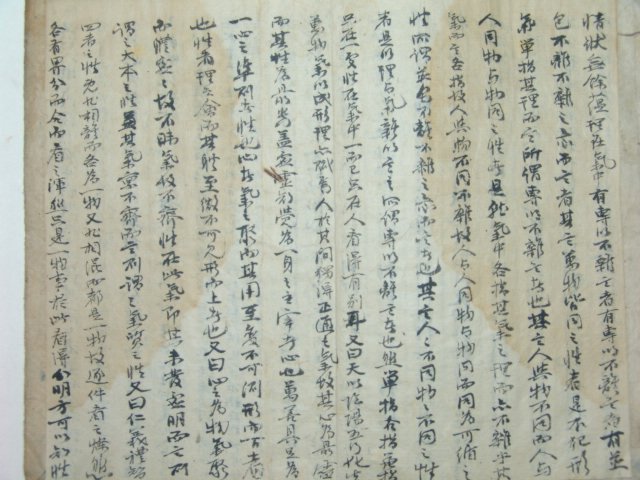 情狀無餘蘊理在氣中有專以不雜言者有專以不離言者有並
包不離不雜之意而言者其言萬物皆同之性者是不犯形
氣單指其理而言所謂專以不雜言者也其言人與物不同而人與
人同物與物同之性者是就氣中各指其氣之理而亦不雜乎其
氣而言各指故人與物不同不雜故人與人同物與物同而同為可循之
性所謂並包不離不雜之意而言者也其言人人不同物物不同之性
者是以理與氣雜而言之所謂專以不離言者也然單指各指兼指
只在一處性在氣中一而已只在人看得有別耳又曰天以陰陽五行化生
萬物氣以成形理亦賦焉人於其間獨得正通之氣故其心為最虛
而其性為最貴蓋虛靈知覺為一身之主宰者心也萬善具足為
一心之準則者性也心者氣之聚而其用至變不可測形而下者
也性者理之會而其體至微不可見形而上者也又曰心之為物氣聚
而體虛之故不昧氣故不齊性在此氣即其未發虛明而言則
謂之大本之性並其氣稟不齊而言則謂之氣質之性又曰仁義禮智
四者之性旣非相離而各為一物又非相混而都是一物故逐件看之燦然
各有界分而合而看之渾然只是一物事於此看得分明方可以知性